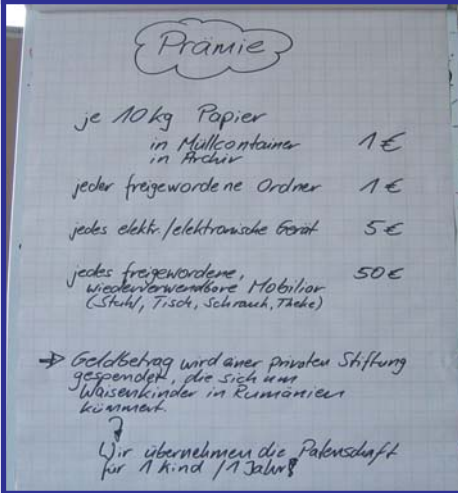 Prämie
je 10kg Papier
in Müllcontainer 1€
in Archiv
jeder freigewordene Ordner 1€
jedes elektr./elektronische Gerät 5€
jedes freigewordene, 50€
wiederverwendbare Mobiliar
(Stuhl, Tisch, Schrank, Theke)
→ Geldbetrag wird einer privaten Stiftung
gespendet, die sich um
Waisenkinder in Rumänien
kümmert.
Wir übernehmen die Patenschaft
für 1 Kind / 1 Jahr!